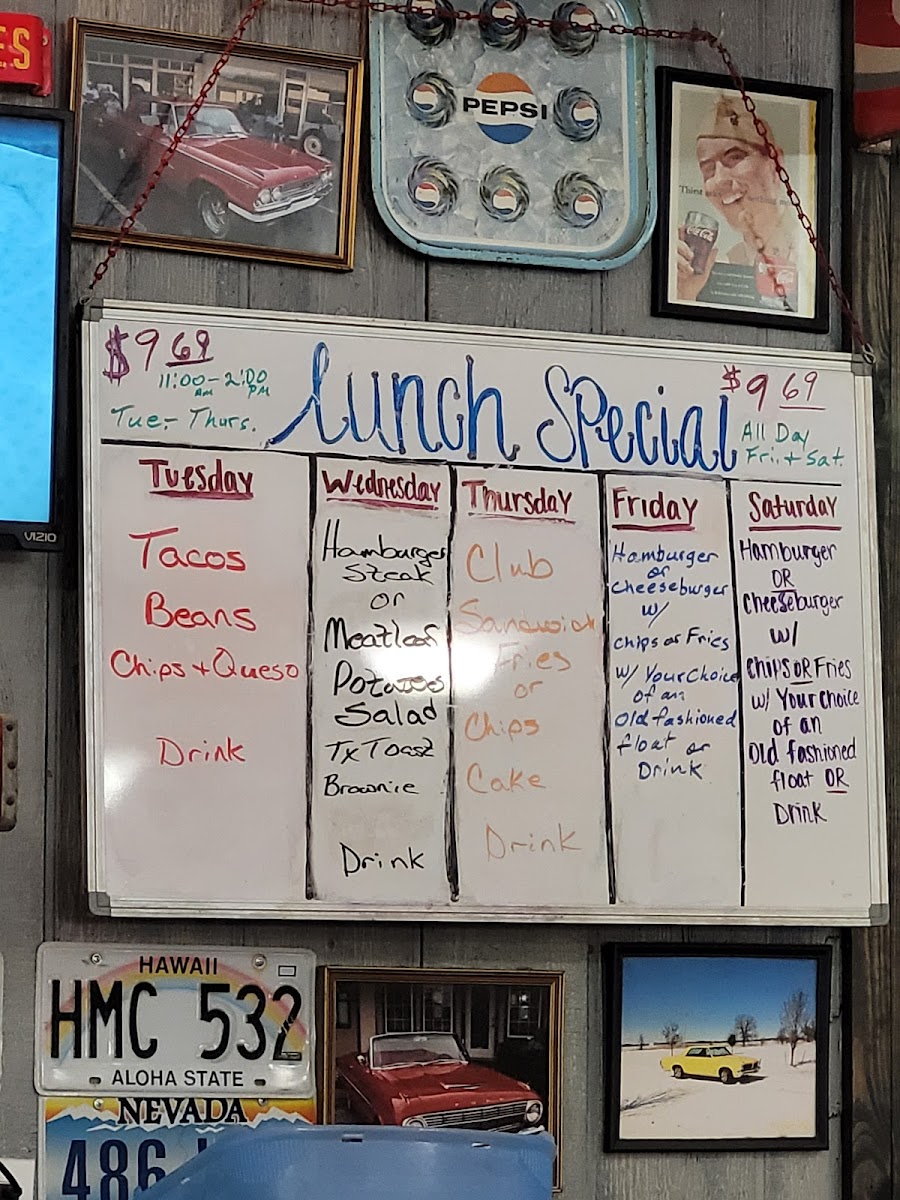 ES
PEPSI
Think
nothing
Coca-Cola
VIZIO
$9.69
11:00 AM - 2:00 PM
Tue.- Thurs.
Lunch Special
$9.69
All Day
Fri. + Sat.
Tuesday
Tacos
Beans
Chips + Queso
Drink
Wednesday
Hamburger
Steak
or
Meatloaf
Potatoes
Salad
TX Toast
Brownie
Drink
Thursday
Club
Sandwich
Fries
or
Chips
Cake
Drink
Friday
Hamburger
or
Cheeseburger
w/
Chips or Fries
w/ Your Choice
of an
Old fashioned
float or
Drink
Saturday
Hamburger
OR
Cheeseburger
w/
Chips OR Fries
w/ Your choice
of an
Old fashioned
float OR
Drink
HAWAII
HMC 532
ALOHA STATE
NEVADA
486